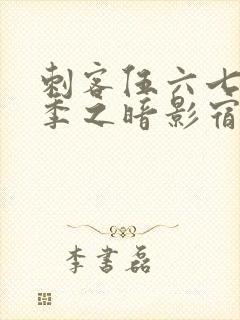 刺客伍六七
季之暗影宿
李書磊